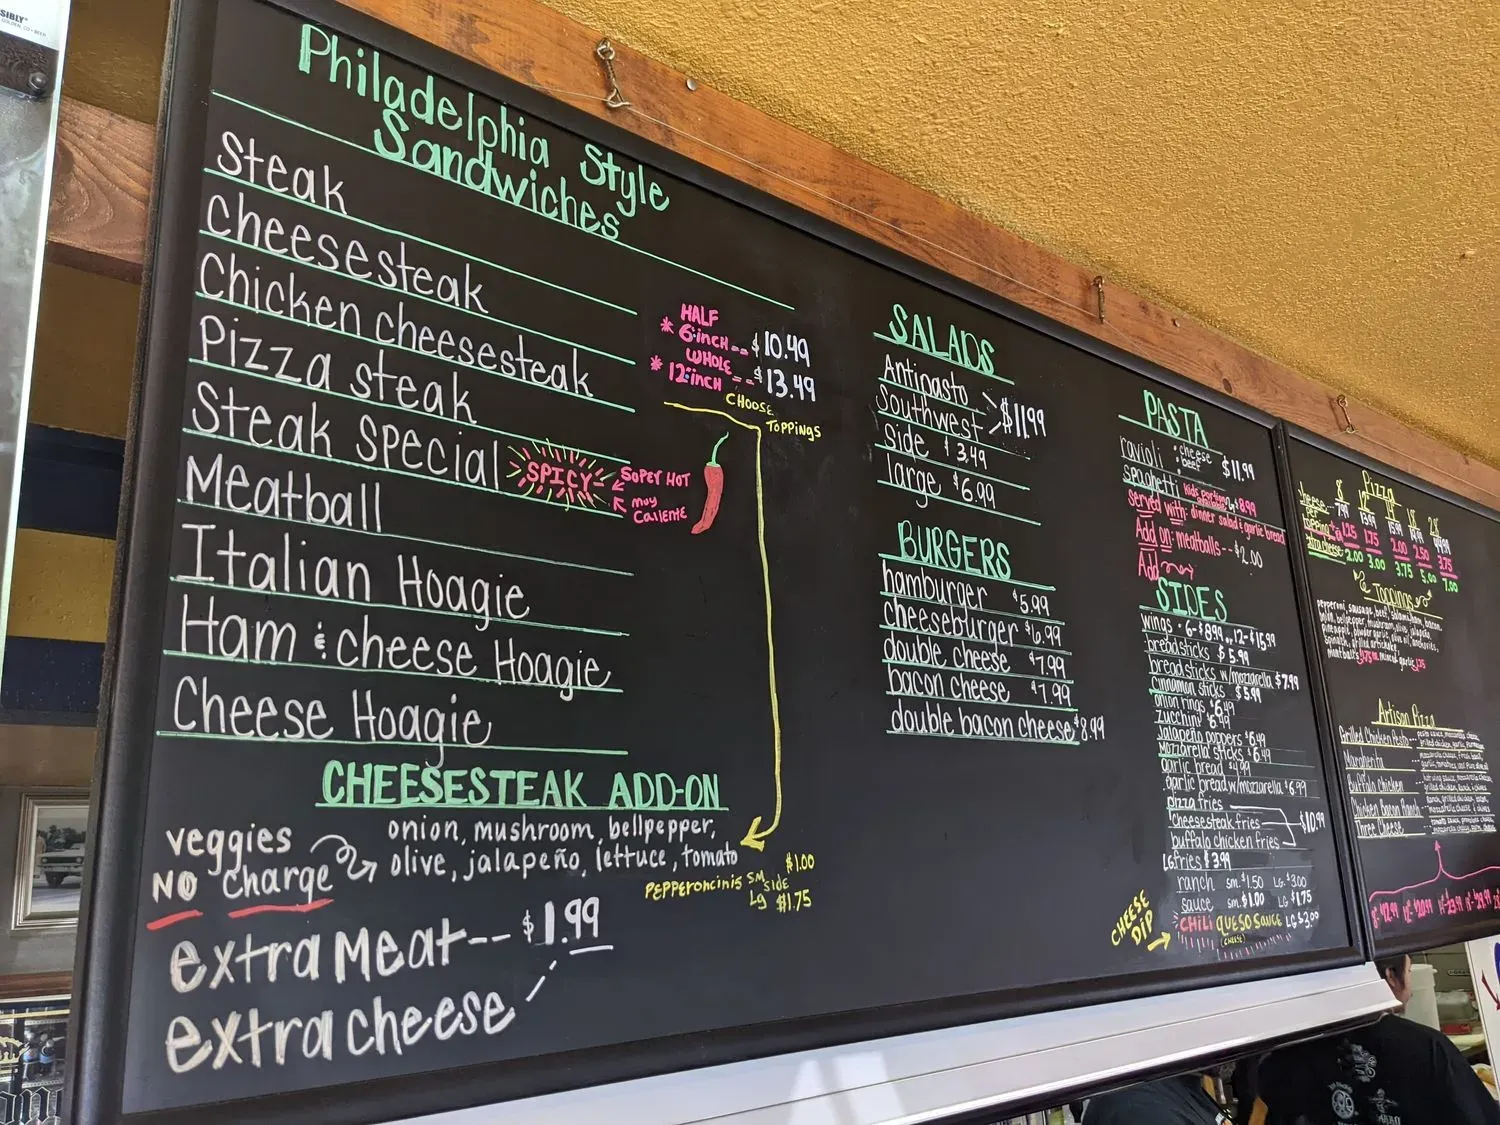 SIBLY
Philadelphia Style
Sandwiches
Steak
Cheesesteak
Chicken cheesesteak
Pizza steak
Steak Special
SPICY
SUPER HOT
muy
Caliente
Meatball
Italian Hoagie
Ham & cheese Hoagie
Cheese Hoagie
HALF
* 6-inch -- $10.49
WHOLE
* 12-inch -- $13.49
CHOOSE
TOPPINGS
CHEESESTEAK ADD-ON
veggies
NO charge
onion, mushroom, bellpepper,
olive, jalapeño, lettuce, tomato
PEPPERONCINIS SM $1.00
side
Lg $1.75
extra meat -- $1.99
extra cheese
SALADS
Antipasto
Southwest > $11.99
side $3.49
large $6.99
BURGERS
hamburger $5.99
cheeseburger $6.99
double cheese $7.99
bacon cheese $7.99
double bacon cheese $8.99
PASTA
ravioli : cheese
beef $11.99
spaghetti kids portion $8.99
served with: dinner salad & garlic bread
Add on: meatballs -- $2.00
Add
SIDES
wings - 6-$8.99, 12-$15.99
breadsticks $5.99
breadsticks w/mozzarella $7.99
cinnamon sticks $5.99
onion rings $6.49
zucchini $6.49
Jalapeño poppers $6.49
Mozzarella sticks $6.49
garlic bread $4.99
garlic bread w/mozzarella $6.99
pizza fries
cheesesteak fries $10.99
buffalo chicken fries
LG fries $3.99
ranch sm. $1.50 LG. $3.00
sauce sm. $1.00 LG $1.75
CHEESE
DIP
CHILI QUESO SAUCE LG $3.00
(CHEESE)
Pizza
Toppings
pepperoni, sausage, beef,
Artisan Pizza
Grilled Chicken Pesto
Margherita
Buffalo Chicken
Chicken Bacon Ranch
Three Cheese